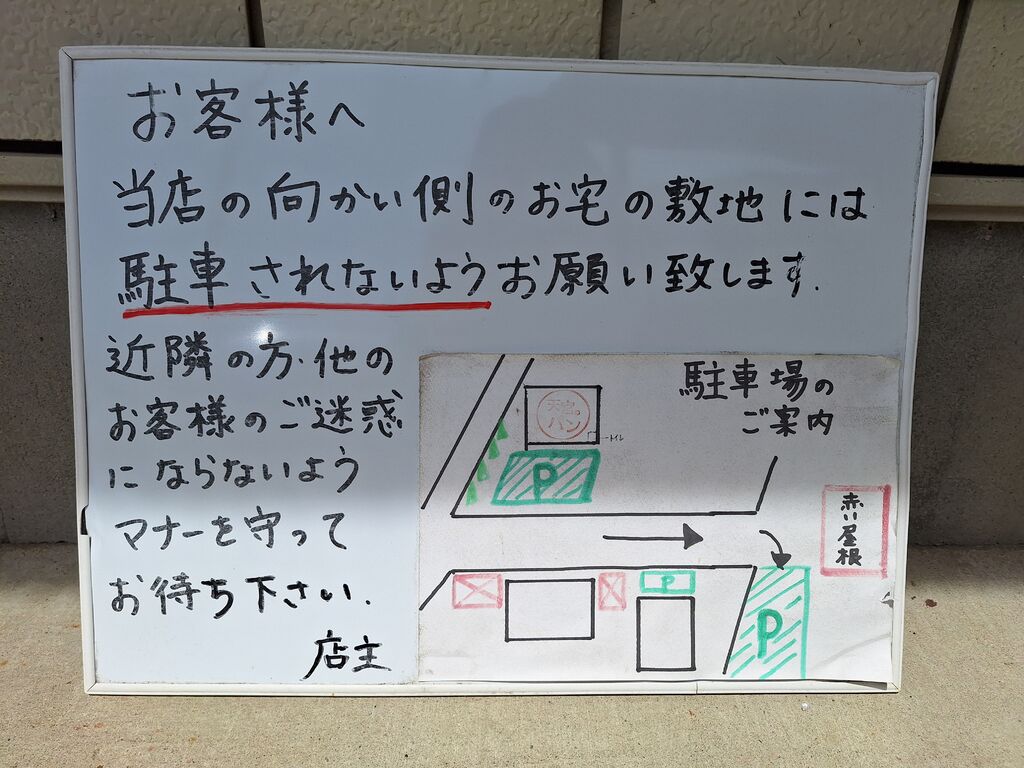 お客様へ
当店の向かい側のお宅の敷地には
駐車されないようお願い致します.
近隣の方・他の
お客様のご迷惑
にならないよう
マナーを守って
お待ち下さい.
店主
駐車場の
ご案内
天然。
パン
トイレ
P
赤い屋根
P
P